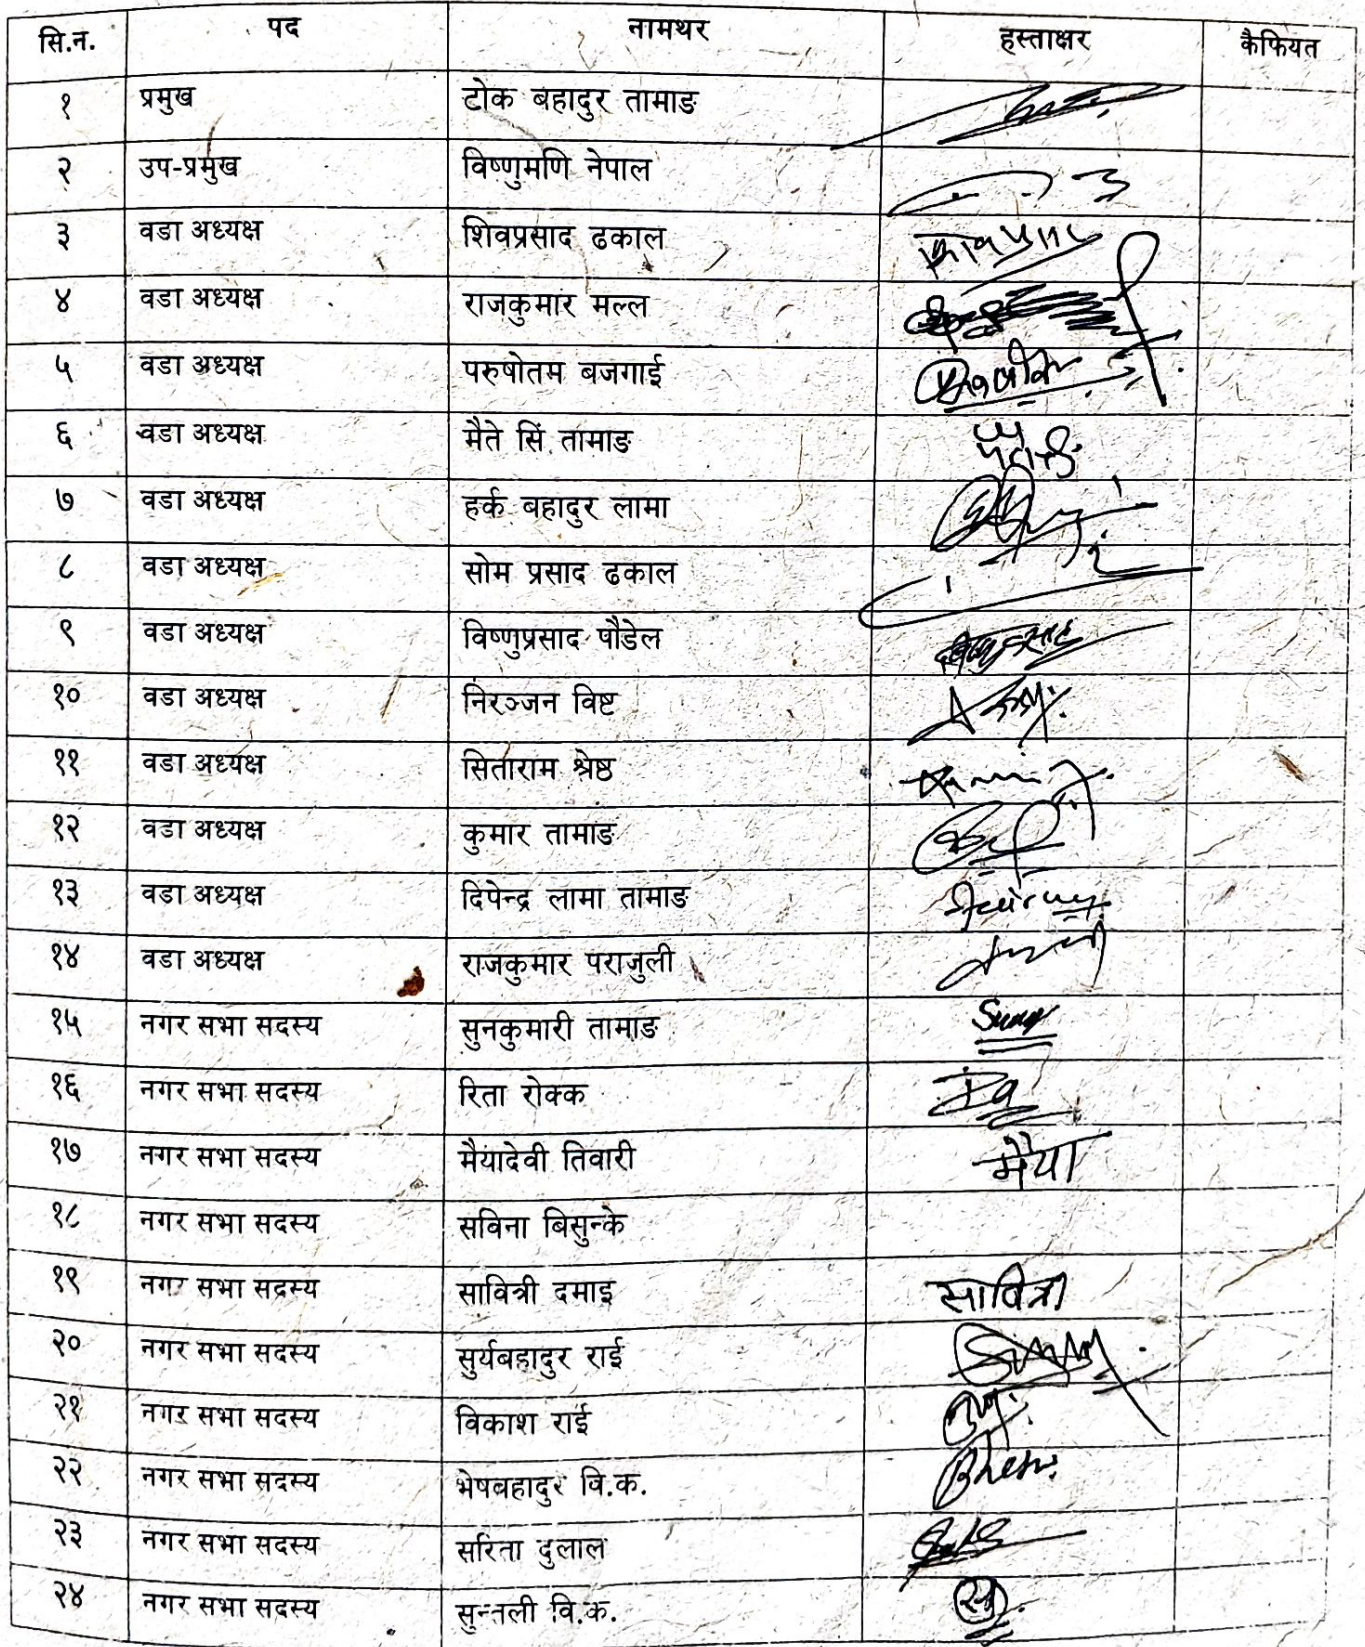 सि.न. पद नामथर हस्ताक्षर कैफियत
१ प्रमुख टोक बहादुर तामाङ
२ उप-प्रमुख विष्णुमणि नेपाल
३ वडा अध्यक्ष शिवप्रसाद ढकाल
४ वडा अध्यक्ष राजकुमार मल्ल
५ वडा अध्यक्ष परुषोतम बजगाई
६ वडा अध्यक्ष मैते सिं तामाङ
७ वडा अध्यक्ष हर्क बहादुर लामा
८ वडा अध्यक्ष सोम प्रसाद ढकाल
९ वडा अध्यक्ष विष्णुप्रसाद पौडेल
१० वडा अध्यक्ष निरञ्जन विष्ट
११ वडा अध्यक्ष सिताराम श्रेष्ठ
१२ वडा अध्यक्ष कुमार तामाङ
१३ वडा अध्यक्ष दिपेन्द्र लामा तामाङ
१४ वडा अध्यक्ष राजकुमार पराजुली
१५ नगर सभा सदस्य सुनकुमारी तामाङ
१६ नगर सभा सदस्य रिता रोक्क
१७ नगर सभा सदस्य मैयादेवी तिवारी मैया
१८ नगर सभा सदस्य सविना बिसुन्के
१९ नगर सभा सदस्य सावित्री दमाइ सावित्री
२० नगर सभा सदस्य सुर्यबहादुर राई
२१ नगर सभा सदस्य विकाश राई
२२ नगर सभा सदस्य भेषबहादुर वि.क.
२३ नगर सभा सदस्य सरिता दुलाल
२४ नगर सभा सदस्य सुन्तली वि.क.